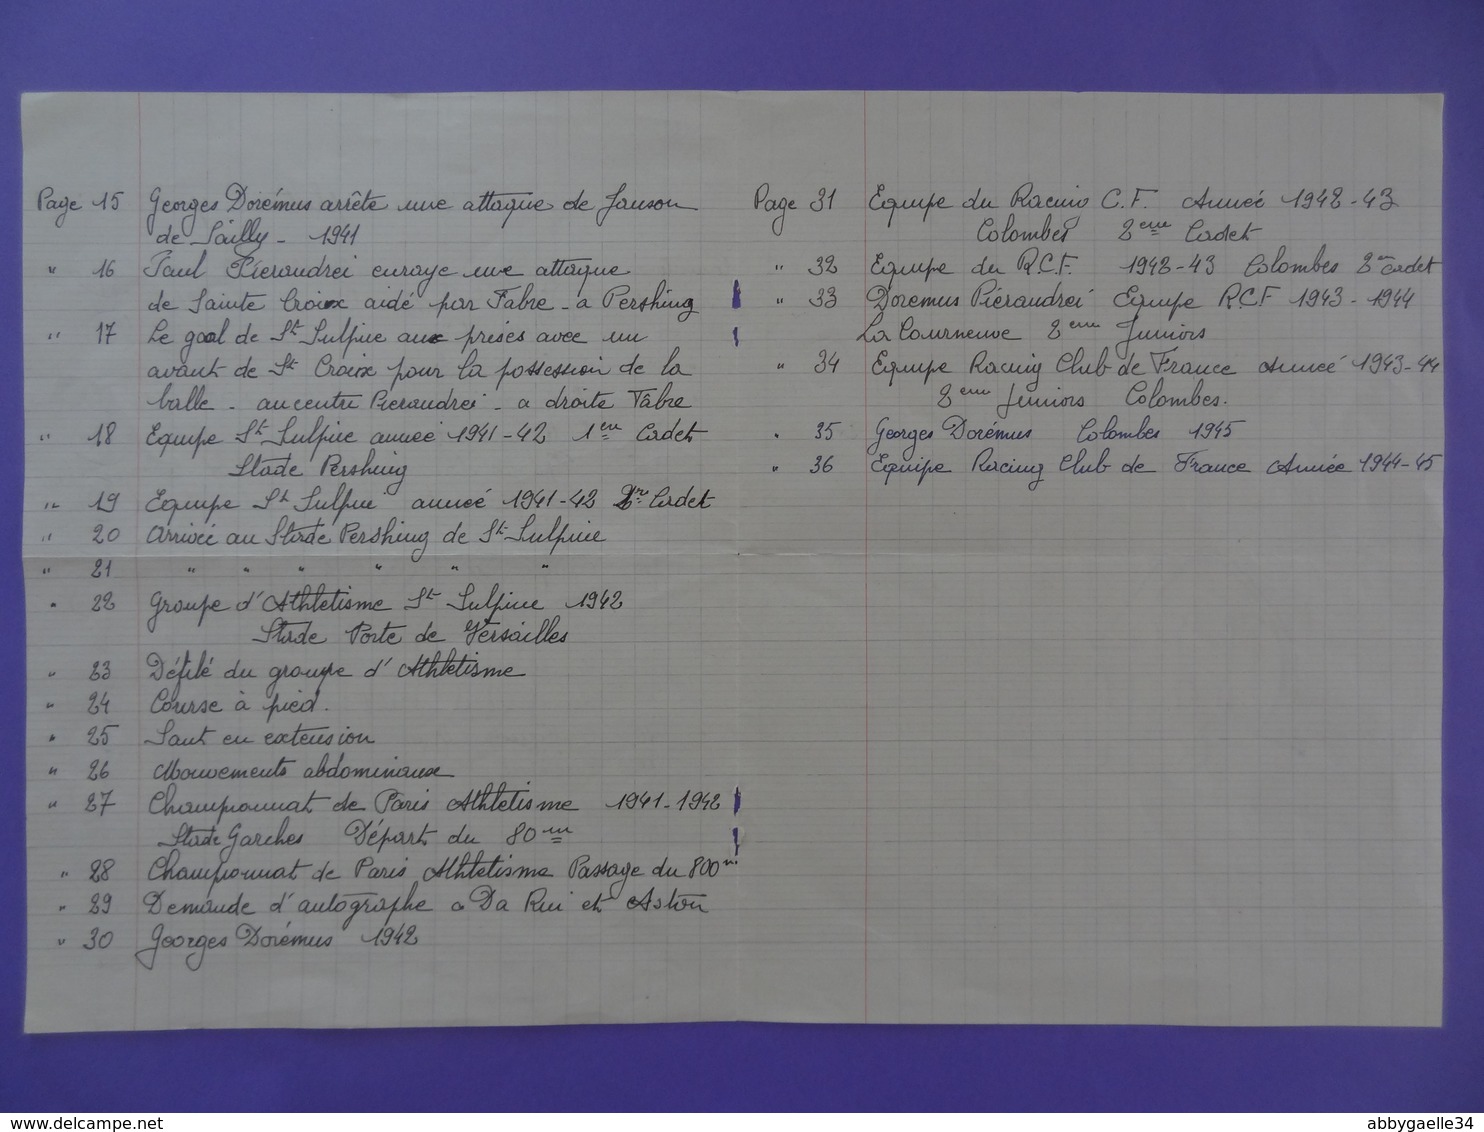 Page 15 Georges Dorémus arrête une attaque de Janson
de Sailly - 1941
" 16 Paul Piéraudrei enraye une attaque
de Sainte Croix aidé par Fabre - a Pershing
" 17 Le goal de St Sulpice aux prises avec un
avant de St Croix pour la possession de la
balle - au centre Pieraudrei - a droite Fabre
" 18 Equipe St Sulpice année 1941-42 1ere Cadet
Stade Pershing
" 19 Equipe St Sulpice année 1941-42 Cadet
" 20 Arrivée au Stade Pershing de St Sulpice
" 21 " " " " " "
" 22 Groupe d'Athletisme St Sulpice 1942
Stade Porte de Versailles
" 23 Défilé du groupe d'Athletisme
" 24 Course à pied.
" 25 Saut en extension
" 26 Mouvements abdominaux
" 27 Championnat de Paris Athletisme 1941-1942
Stade Garches Départ du 80 m
" 28 Championnat de Paris Athletisme Passage du 800 m.
" 29 Demande d'autographe a Da Rui et Aston
" 30 Georges Dorémus 1942
Page 31 Equipe du Racing C.F. Année 1942-43
Colombes 2eme Cadet
" 32 Equipe du R.C.F. 1942-43 Colombes Cadet
" 33 Doremus Piéraudrei Equipe R.C.F 1943-1944
La Courneuve 2eme Juniors
" 34 Equipe Racing Club de France Année 1943-44
2eme Juniors Colombes.
" 35 Georges Dorémus Colombes 1945
" 36 Equipe Racing Club de France Année 1944-45
www.delcampe.net
abbygaelle34